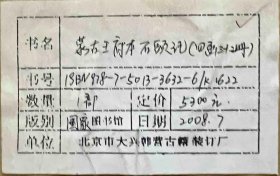 书名 蒙古王府本石头记(四函三十二册)
书号 ISBN978-7-5013-3632-6/K·1622
数量 1部 定价 5300元
版别 国家图书馆 日期 2008.7
单位 北京市大兴韩营古籍装订厂